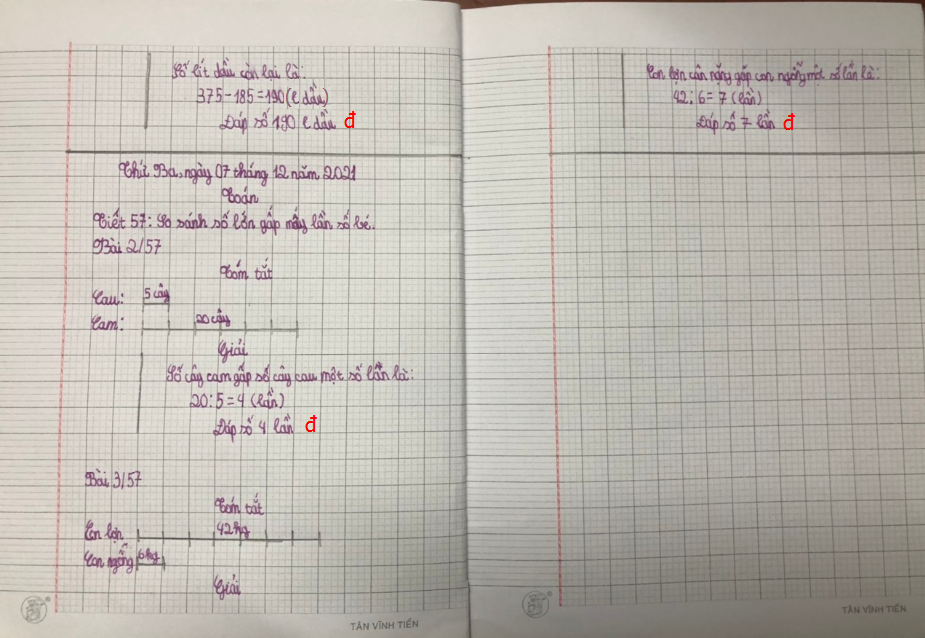 Số lít dầu còn lại là:
375 - 185 = 190 (l dầu)
Đáp số 190 l dầu đ
Thứ Ba, ngày 07 tháng 12 năm 2021
Toán
Tiết 57: So sánh số lớn gấp mấy lần số bé.
Bài 2/57
Tóm tắt
Cau: 5 cây
Cam: 20 cây
Giải
Số cây cam gấp số cây cau một số lần là:
20 : 5 = 4 (lần)
Đáp số 4 lần đ
Bài 3/57
Tóm tắt
Con lợn 42kg
Con ngỗng 6kg
Giải
TÂN VĨNH TIẾN
Con lợn cân nặng gấp con ngỗng một số lần là:
42 : 6 = 7 (lần)
Đáp số 7 lần đ
TÂN VĨNH TIẾN